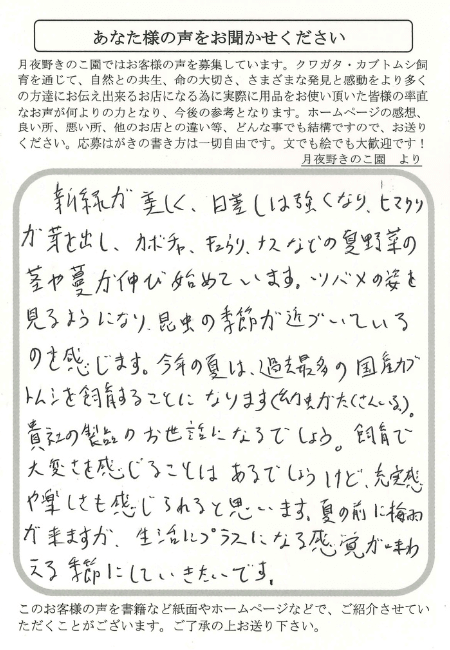 あなた様の声をお聞かせください
月夜野きのこ園ではお客様の声を募集しています。クワガタ・カブトムシ飼
育を通じて、自然との共生、命の大切さ、さまざまな発見と感動をより多く
の方達にお伝え出来るお店になる為に実際に用品をお使い頂いた皆様の率直
なお声が何よりの力となり、今後の参考となります。ホームページの感想、
良い所、悪い所、他のお店との違い等、どんな事でも結構ですので、お送り
ください。応募はがきの書き方は一切自由です。文でも絵でも大歓迎です！
月夜野きのこ園　より
新緑が美しく、日差しは強くなり、ヒマワリ
が芽を出し、カボチャ、キュウリ、ナスなどの夏野菜の
茎や蔓が伸び始めています。ツバメの姿を
見るようになり、昆虫の季節が近づいている
のを感じます。今年の夏は、過去最多の国産カブ
トムシを飼育することになります(幼虫がたくさんいる)。
貴社の製品のお世話になるでしょう。飼育で
大変さを感じることはあるでしょうけど、充実感
や楽しさも感じられると思います。夏の前に梅雨
が来ますが、生活にプラスになる感覚が味わ
える季節にしていきたいです。
このお客様の声を書籍など紙面やホームページなどで、ご紹介させてい
ただくことがございます。ご了承の上お送り下さい。